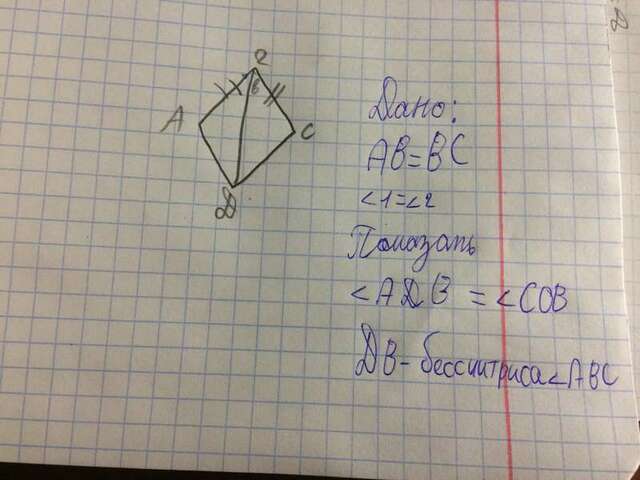 2
6
A
C
D
Дано:
AB=BC
<1=<2
Показать
<ADB = <COB
DB-бессиктриса<ABC